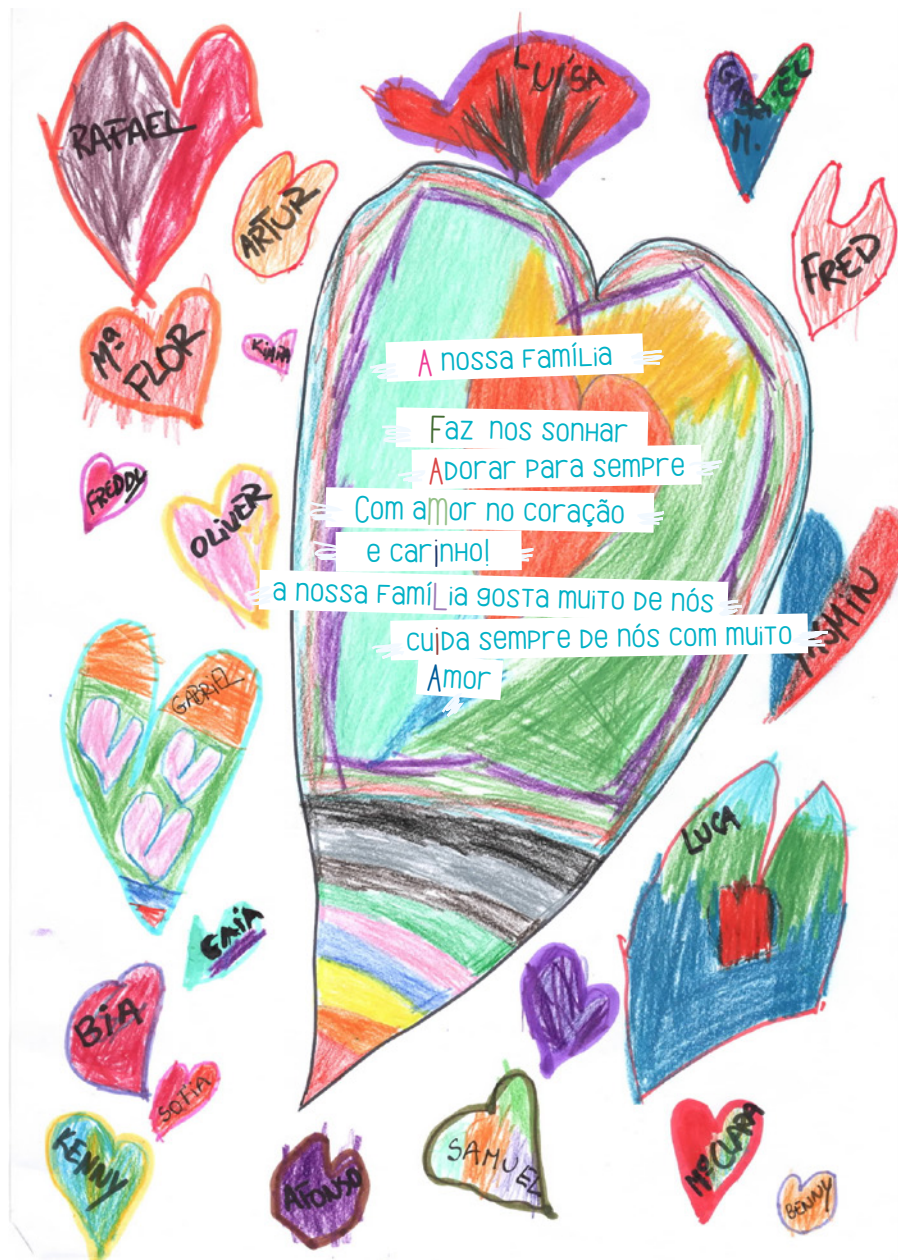 LUÍSA
GABRIEL
M.
RAFAEL
ARTUR
FRED
Mª
FLOR
A nossa Família
Faz nos sonhar
Adorar para sempre
Com amor no coração
e carinho!
a nossa Família gosta muito de nós
cuida sempre de nós com muito
Amor
FREDDY
OLIVER
GABRIEL
LUCA
GAIA
BIA
SOFIA
KENNY
AFONSO
SAMUEL
Mª CLARA
BENNY